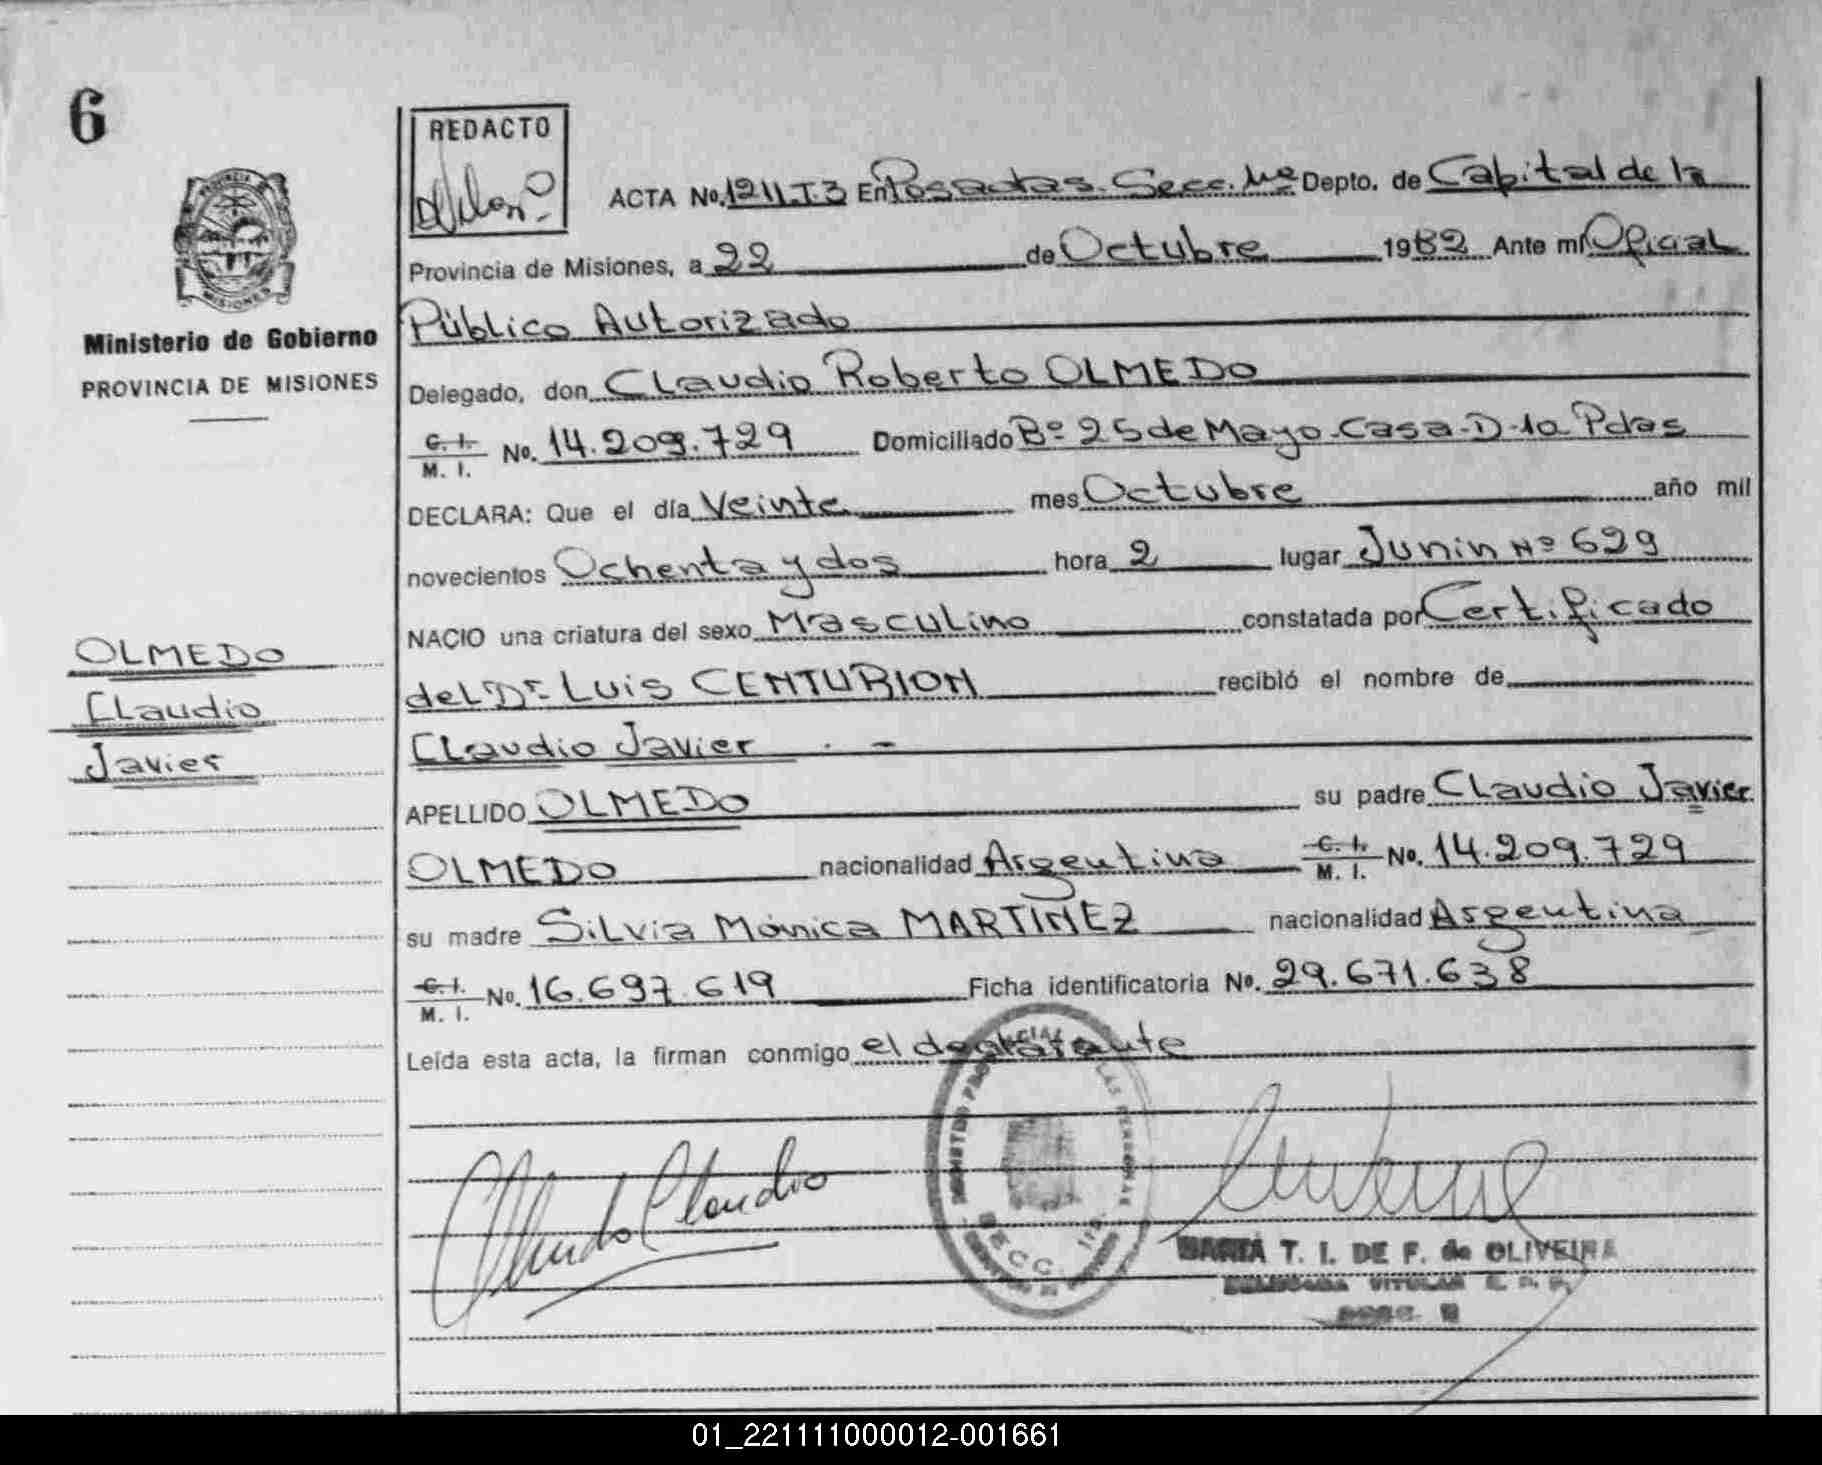 6
REDACTO
ACTA No. 1211.T.3 En Posadas. Secc. 1ra Depto. de Capital de la
Provincia de Misiones, a 22 de Octubre 1982 Ante mí Oficial
Ministerio de Gobierno
PROVINCIA DE MISIONES
Público Autorizado
Delegado, don Claudio Roberto OLMEDO
C. I.
M. I. No. 14.209.729 Domiciliado Bº 25 de Mayo-Casa-D-10 Pdas
DECLARA: Que el día Veinte mes Octubre año mil
novecientos Ochenta y dos hora 2 lugar Junin Nº 629
NACIO una criatura del sexo Masculino constatada por Certificado
del Dr Luis CENTURION recibió el nombre de
Claudio Javier . -
APELLIDO OLMEDO su padre Claudio Javier
OLMEDO nacionalidad Argentina C. I.
M. I. No. 14.209.729
su madre Silvia Mónica MARTINEZ nacionalidad Argentina
C. I.
M. I. No. 16.697.619 Ficha identificatoria No. 29.671.638
Leída esta acta, la firman conmigo el declarante
OLMEDO
Claudio
Javier
Olmedo Claudio
MARIA T. I. DE F. de OLIVEIRA
01_221111000012-001661